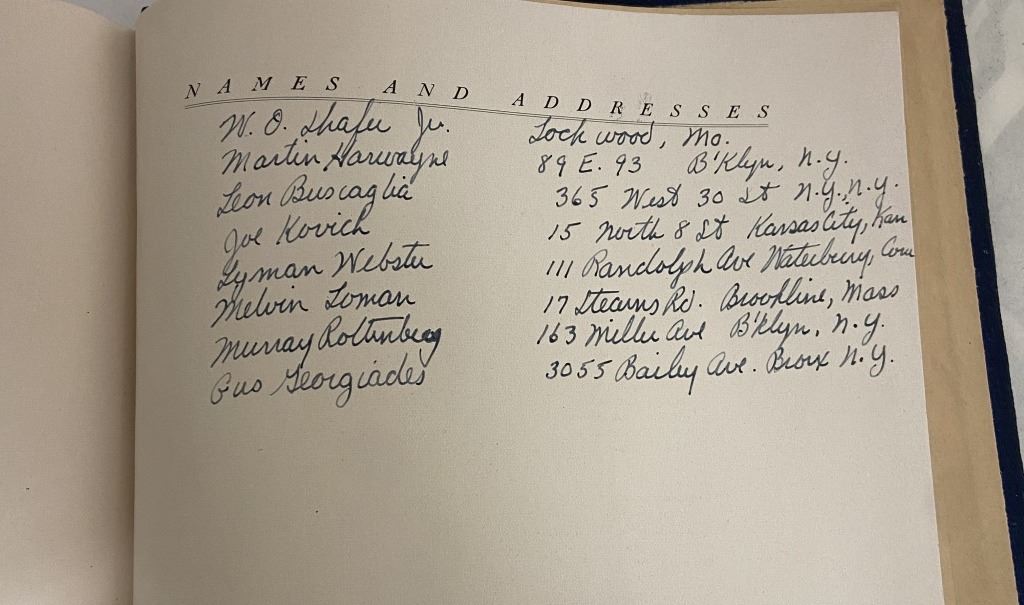 NAMES AND ADDRESSES
W. O. Shafer Jr. Lockwood, Mo.
Martin Harwayne 89 E. 93 B'Klyn, N.Y.
Leon Buscaglia 365 West 30 St N.Y., N.Y.
Joe Kovich 15 North 8 St Kansas City, Kan
Lyman Webster 111 Randolph Ave Waterbury, Conn
Melvin Loman 17 Stearns Rd. Brookline, Mass
Murray Rottenberg 163 Miller Ave B'klyn, N.Y.
Gus Georgiades 3055 Bailey Ave. Bronx N.Y.